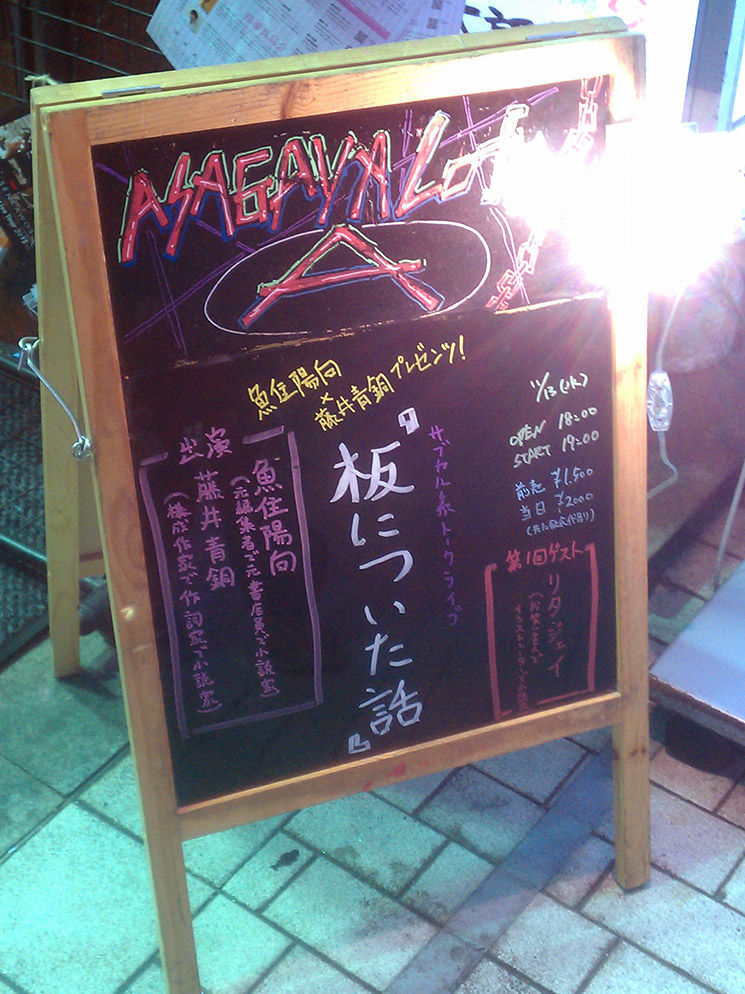 ASAGAYA Loft
A
魚住陽向
×
藤井青銅プレゼンツ!
11/13(水)
OPEN 18:00
START 19:00
前売 ¥1,500
当日 ¥2000
サブカル系トークライブ
『板についた話』
第1回ゲスト
リタ・ジェイ
出演
魚住陽向
(元編集者で元書店員で小説家)
藤井青銅
(構成作家で作詞家で小説家)